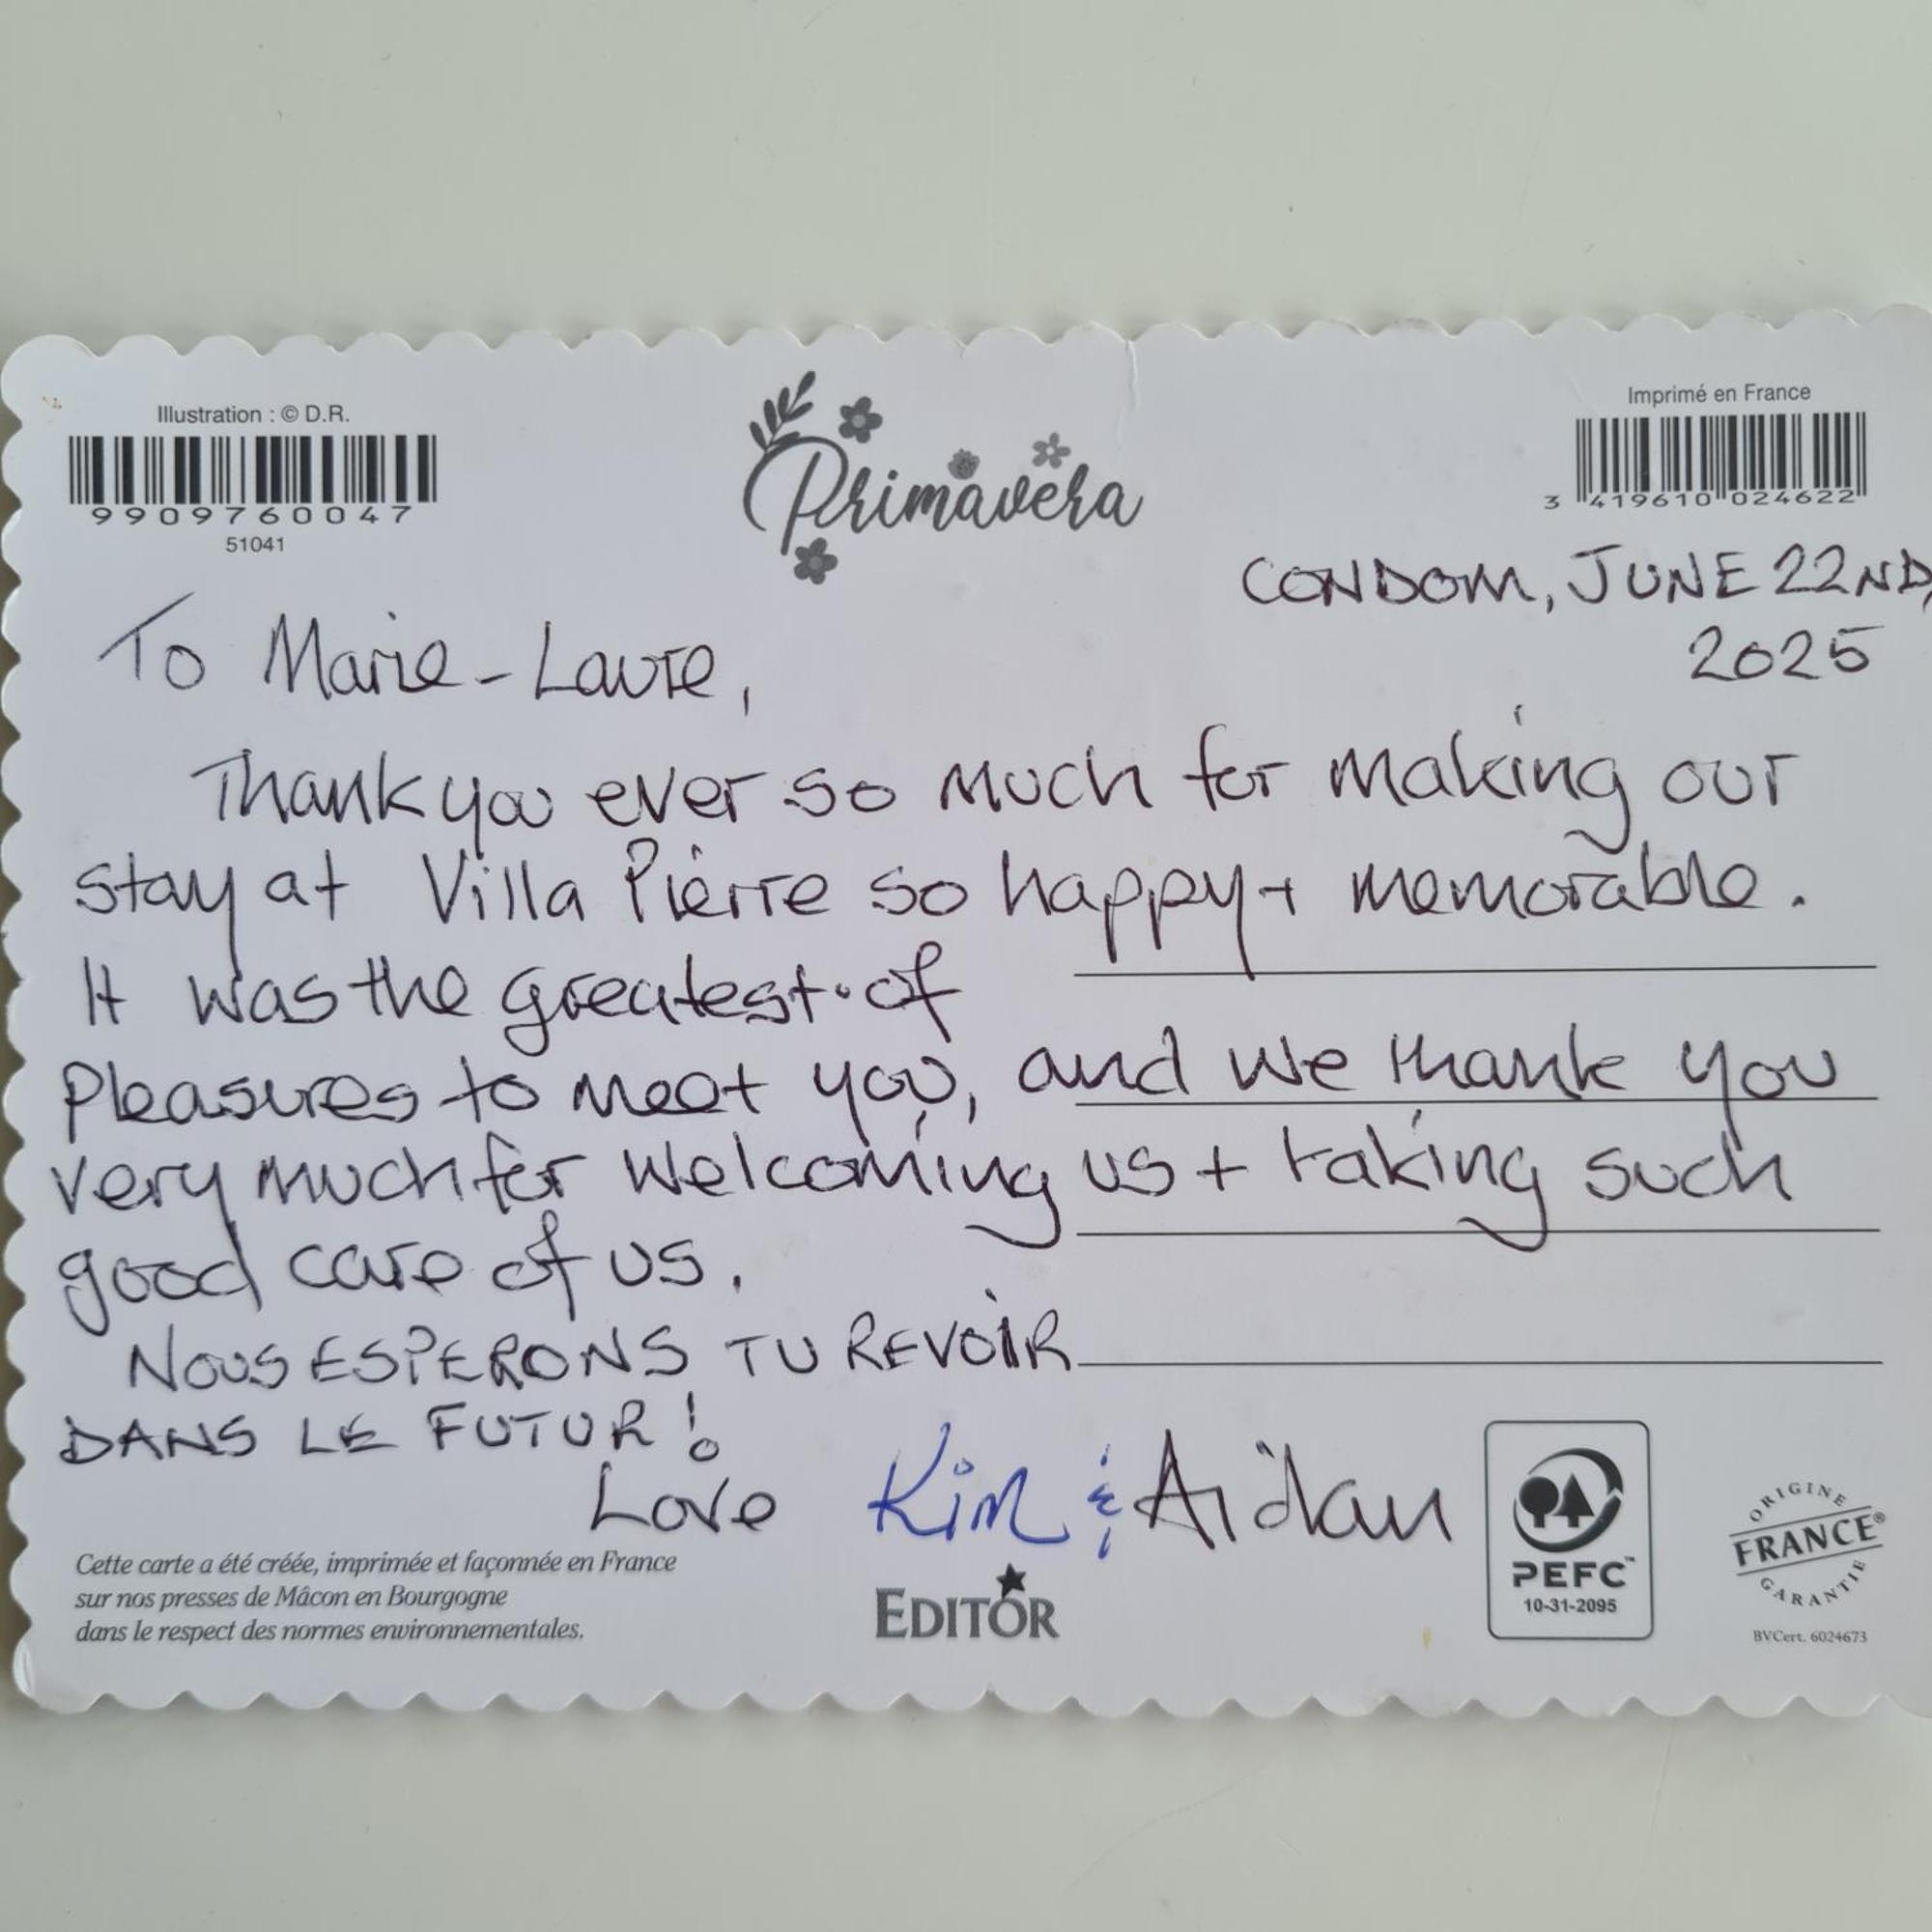 Illustration : © D.R.
9909760047
51041
Primavera
Imprimé en France
3 419610 024622
CONDOM, JUNE 22ND,
2025
To Marie-Laure,
Thank you ever so much for making our
stay at Villa Pierre so happy + memorable.
It was the greatest of
pleasures to meet you, and we thank you
very much for welcoming us + taking such
good care of us.
NOUS ESPERONS TU REVOIR
DANS LE FUTUR!
Love Kim & Aidan
Cette carte a été créée, imprimée et façonnée en France
sur nos presses de Mâcon en Bourgogne
dans le respect des normes environnementales.
EDITOR
PEFC™
10-31-2095
ORIGINE
FRANCE®
GARANTIE
BVCert. 6024673